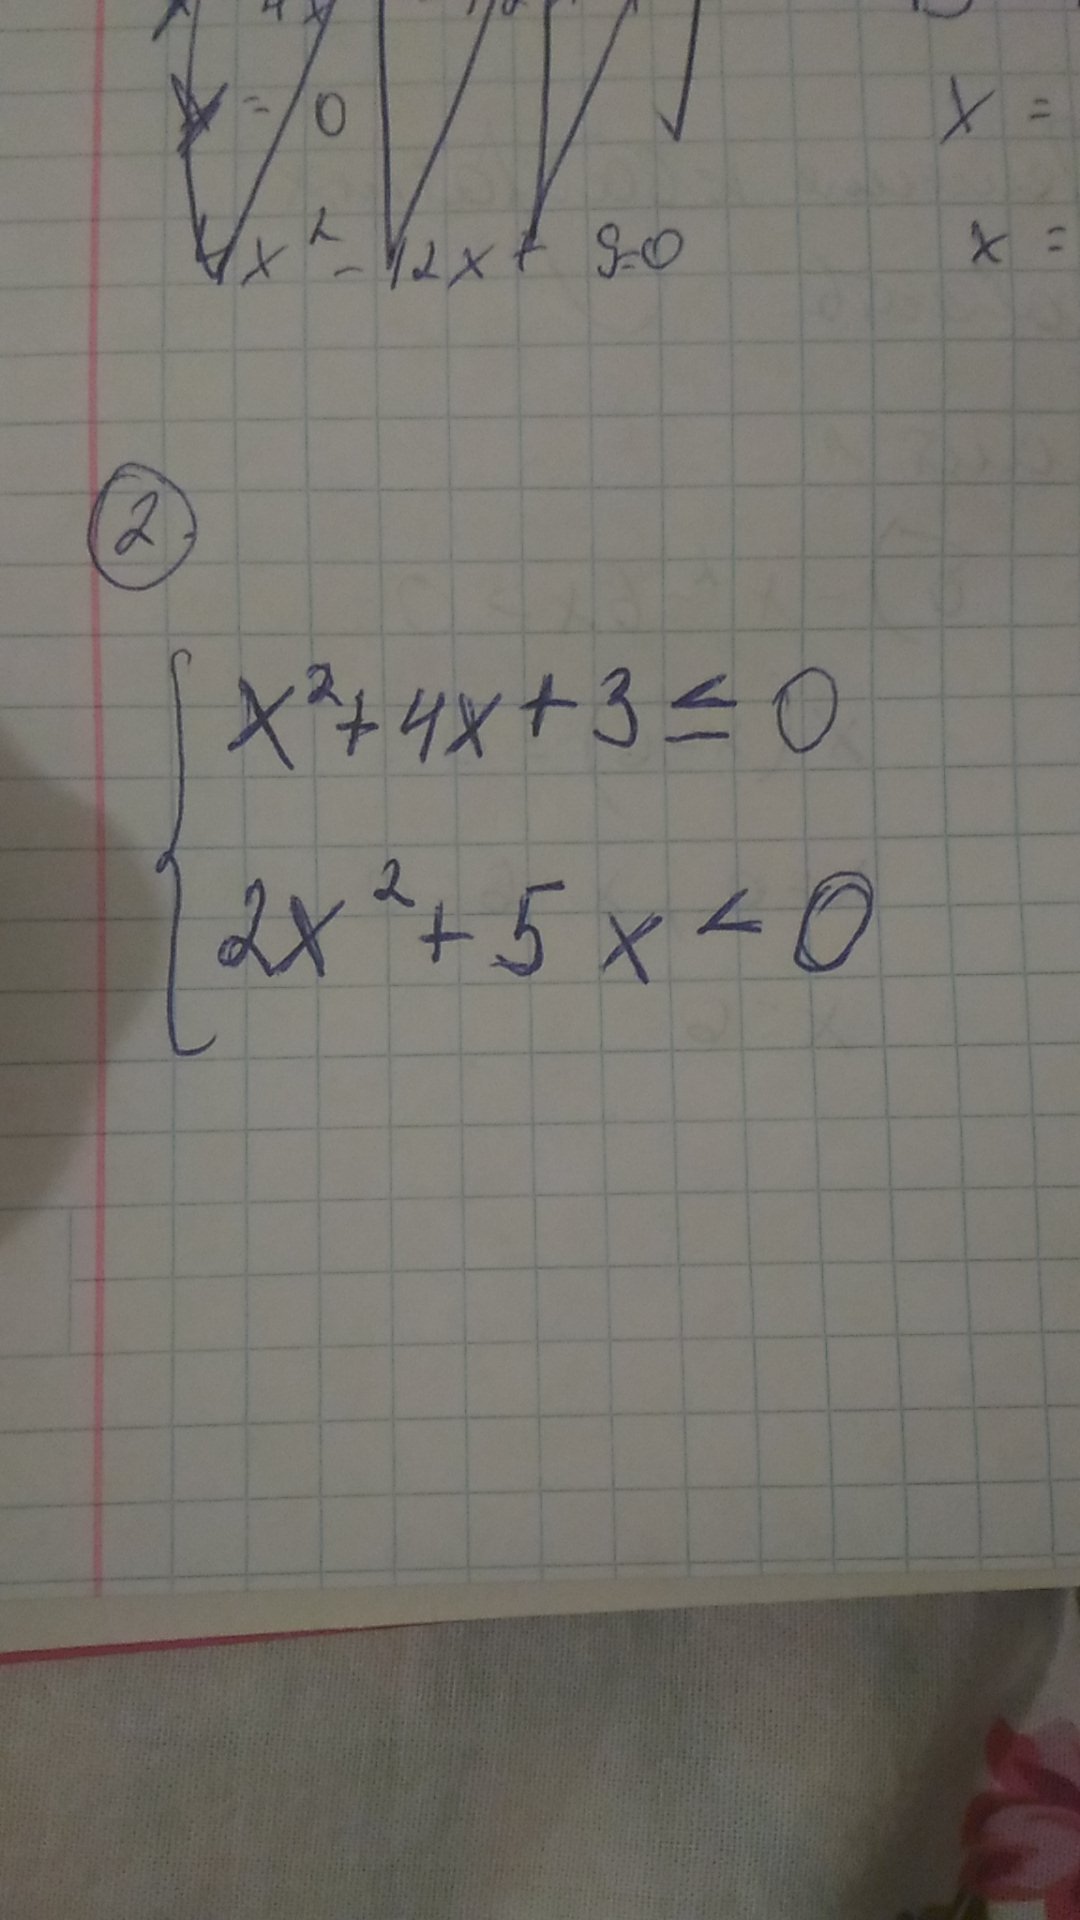 x = 0
x =
4x² - 12x + 9=0
x =
2
x² + 4x + 3 ≤ 0
2x² + 5x < 0